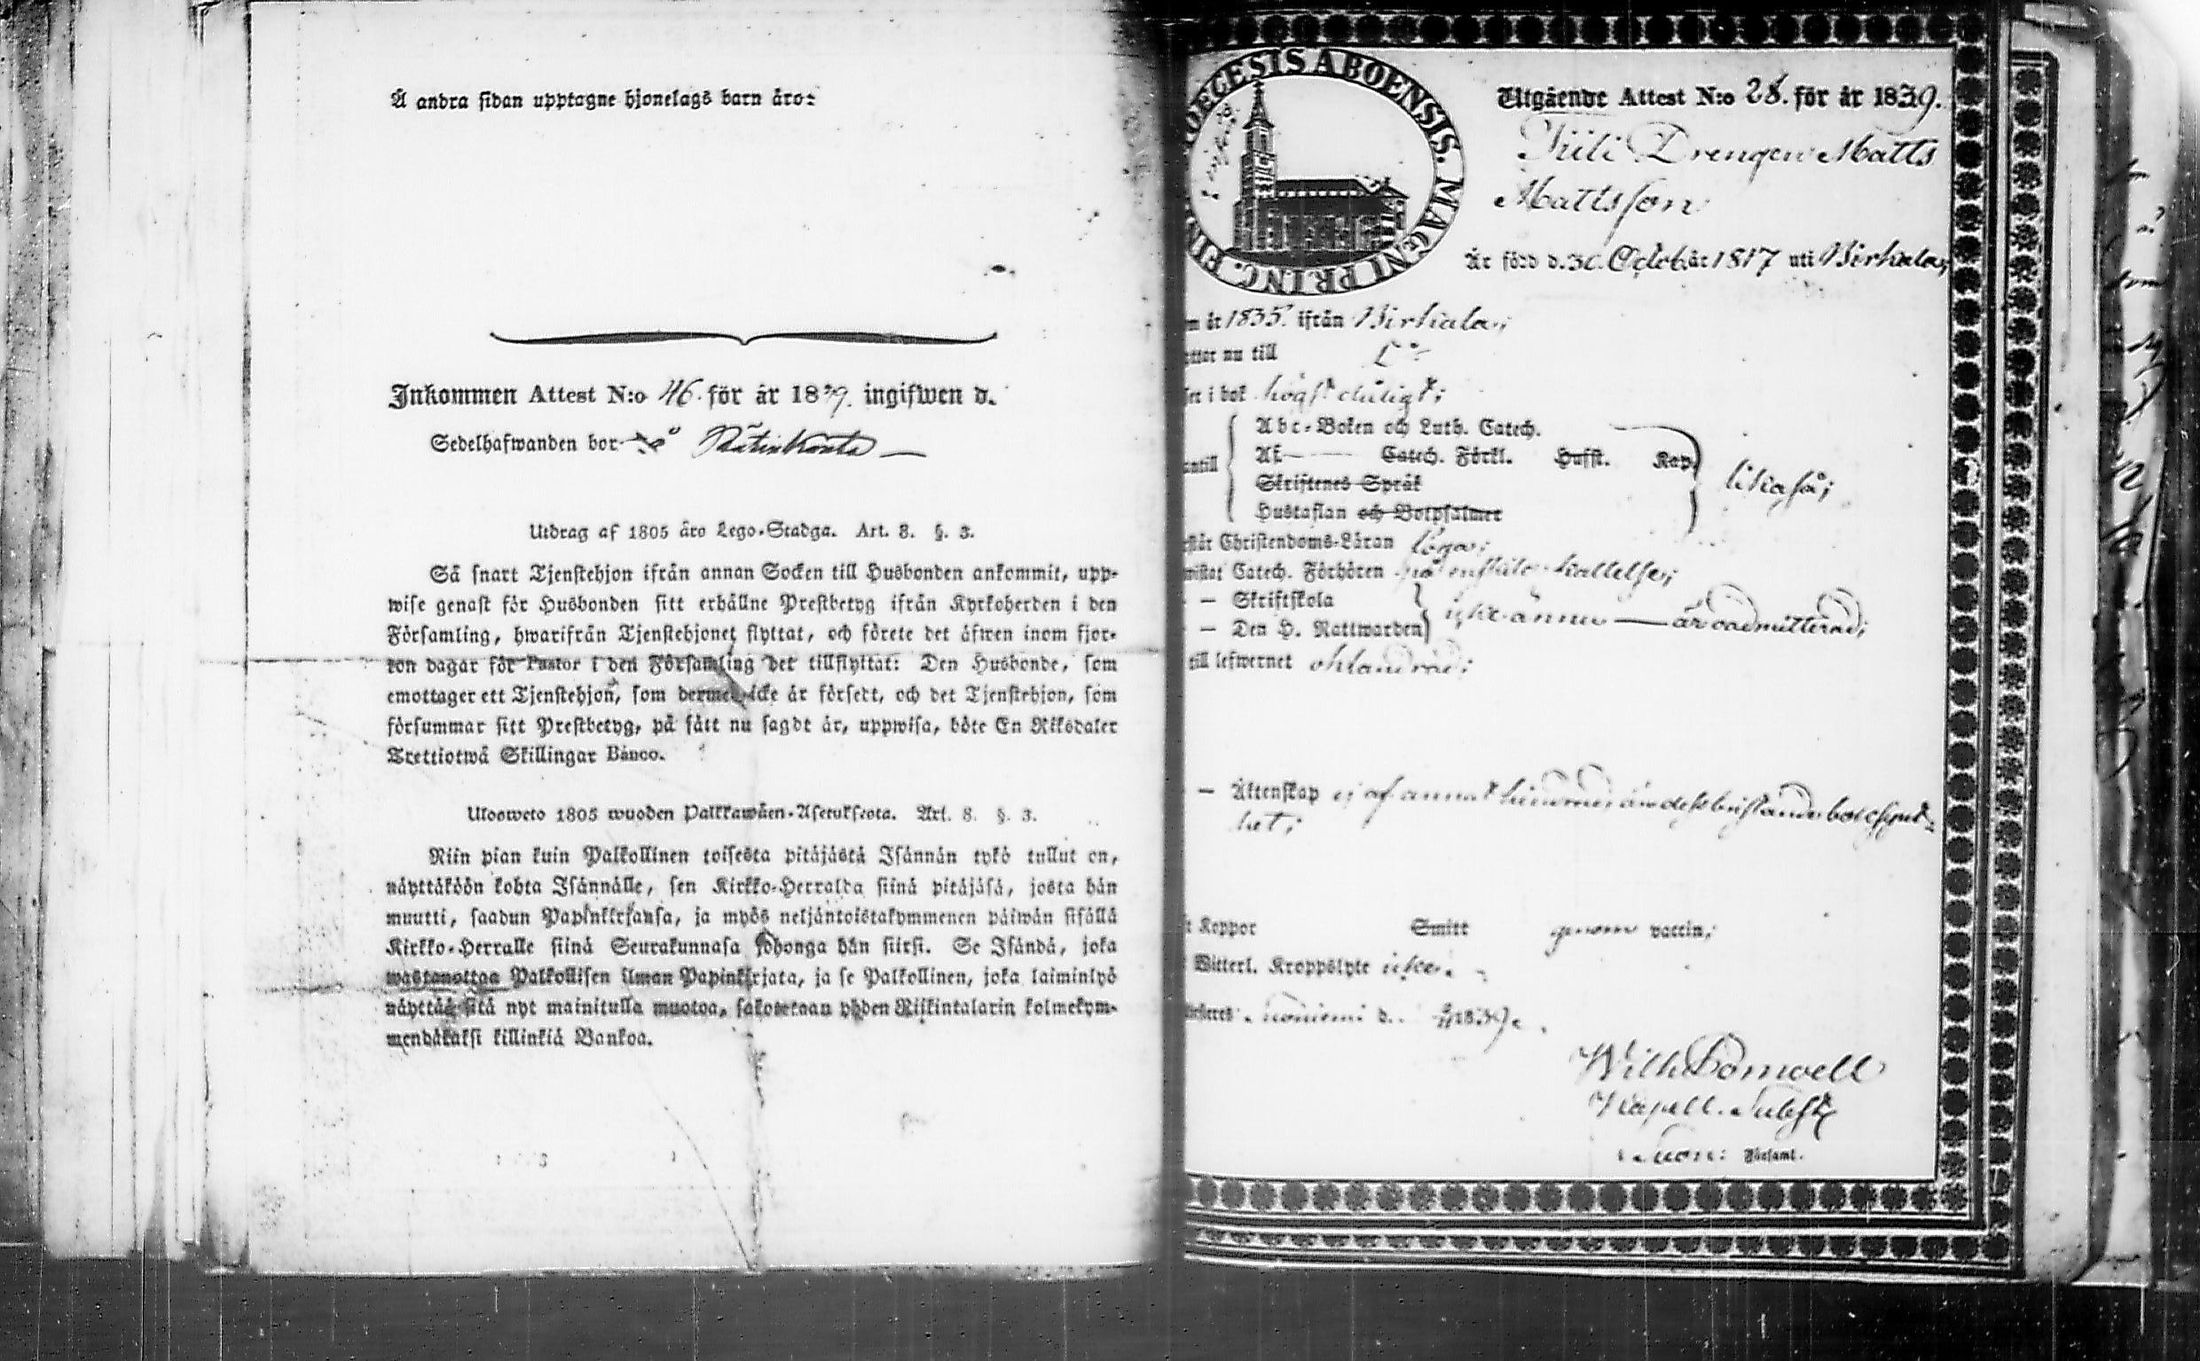 Å andra sidan upptagne hjonelags barn äro:
Inkommen Attest N:o 46. för år 1839. ingifwen d.
Sedelhafwanden bor på
Utdrag af 1805 års Lego-Stadga. Art. 8. §. 3.
Så snart Tjenstehjon ifrån annan Socken till Husbonden ankommit, upp-
wise genast för Husbonden sitt erhållne Prestbetyg ifrån Kyrkoherden i den
Församling, hwarifrån Tjenstehjonet flyttat, och förete det äfwen inom fjor-
ton dagar för Pastor i den Församling det tillflyttat: Den Husbonde, som
emottager ett Tjenstehjon, som dermed icke är försedt, och det Tjenstehjon, som
försummar sitt Prestbetyg, på sätt nu sagdt är, uppwisa, böte En Riksdaler
Trettiotwå Skillingar Banco.
Ulosweto 1805 wuoden Palkkawäen-Asetuksesta. Art. 8. §. 3.
Niin pian kuin Palkollinen toisesta pitäjästä Isännän tykö tullut on,
näyttäköön kohta Isännälle, sen Kirkko-Herralda siinä pitäjäsä, josta hän
muutti, saadun Papinkirjansa, ja myös neljäntoistakymmenen päiwän sisällä
Kirkko-Herralle siinä Seurakunnasa johonga hän siirsi. Se Isändä, joka
wastanottaa Palkollisen ilman Papinkirjata, ja se Palkollinen, joka laiminlyö
näyttää sitä nyt mainitulla muotoa, sakotetaan yhden Riikintalarin kolmekym-
mendäkaksi killinkiä Bankoa.
DIOECESIS ABOENSIS. MAGNI PRINC. FIN
Utgående Attest N:o 28. för år 1839.
Drengen Matts
Mattsson
Är född d. 30. Octob. år 1817 uti Birkala;
m år 1835. ifrån Birkala;
ttar nu till
ser i bok högst dåligt;
Abc-Boken och Luth. Catech.
Af Catech. Förkl. Hufst. Kap.
antill likaså;
Skriftenes Språk
Hustaflan och Botpsalmer
står Christendoms-Läran
wistat Catech. Förhören kallelse;
— — Skriftskola
— — Den H. Nattwarden icke ännu — är oadmitterad;
till lefwernet oklandrad;
— Äktenskap ej af annat hinder än dess bristande boksynt-
het;
t Koppor Smitt genom vaccin;
Witterl. Kroppslyte icke.
d. 1839.
Wilh.
Kapell. Subst.
Församl.